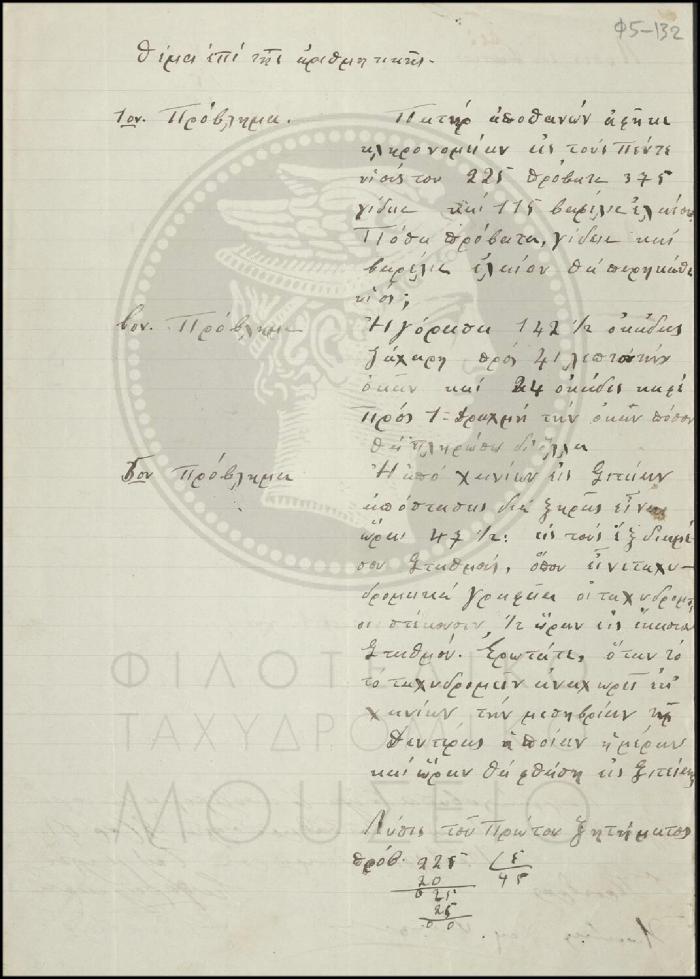 Φ5-132
Θέμα ἐπί τῆς ἀριθμητικῆς.
1ον. Πρόβλημα. Πατήρ ἀποθανών ἀφῆκε
κληρονομίαν εἰς τούς πέντε
υἱούς του 225 πρόβατα 375
γίδια καί 115 βαρέλια ἐλαίου
Πόσα πρόβατα, γίδια καί
βαρέλια ἐλαίου θά πάρῃ κάθε
υἱός;
βον. Πρόβλημα Ἠγόρασα 142 1/2 ὀκάδες
ζάχαρη πρός 41 λεπτά τήν
ὀκᾶν καί 24 ὀκάδες καφέ
πρός 1 δραχμή τήν ὀκᾶν πόσον
θά πληρώσω δι' ὅλα
γον Πρόβλημα Ἡ ἀπό χανίων εἰς Σητείαν
ἀπόστασις διά ξηρᾶς εἶναι
ὧραι 47 1/2: εἰς τούς ἕξ διαμέ
σου Σταθμούς, ὅπου εἶνε ταχυ-
δρομικά γραφεῖα οἱ ταχυδρόμοι
στέκουσιν 1/2 ὥραν εἰς ἕκαστον
Σταθμόν. Ἐρωτᾶται, ὅταν τό
τό ταχυδρομεῖον ἀναχωρεῖ ἐκ
χανίων τήν μεσημβρίαν τῆς
Δευτέρας ποίαν ἡμέραν
καί ὥραν θά φθάσῃ εἰς Σητείαν
Λύσις τοῦ Πρώτου ζητήματος
πρόβ. 225 5
20 45
0 25
25
0 0
ΦΙΛΟΤΕΛΙΚΟ
ΤΑΧΥΔΡΟΜΙΚΟ
ΜΟΥΣΕΙΟ